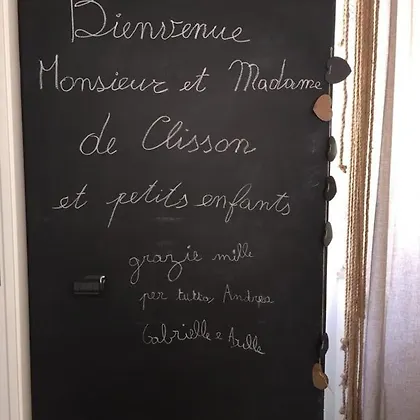 Bienvenue
Monsieur et Madame
de Clisson
et petits enfants
grazie mille
per tutto Andrea
Gabrielle e